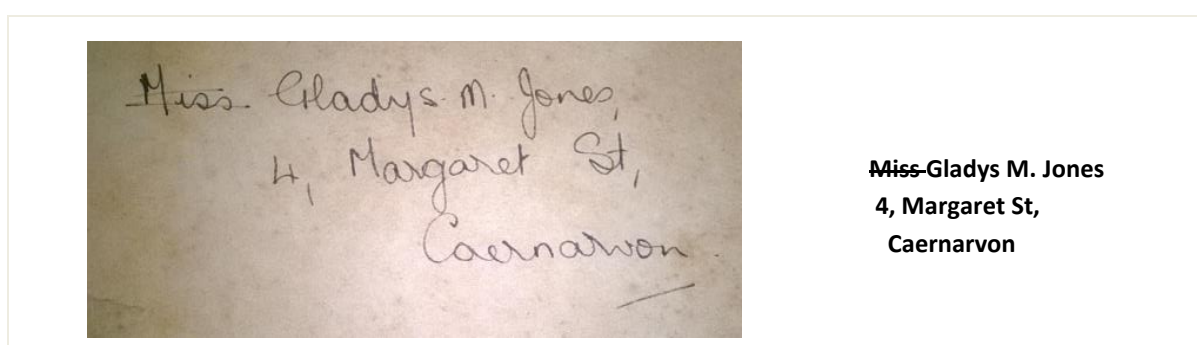 Miss Gladys. M. Jones,
4, Margaret St,
Caernarvon.
Miss Gladys M. Jones
4, Margaret St,
Caernarvon